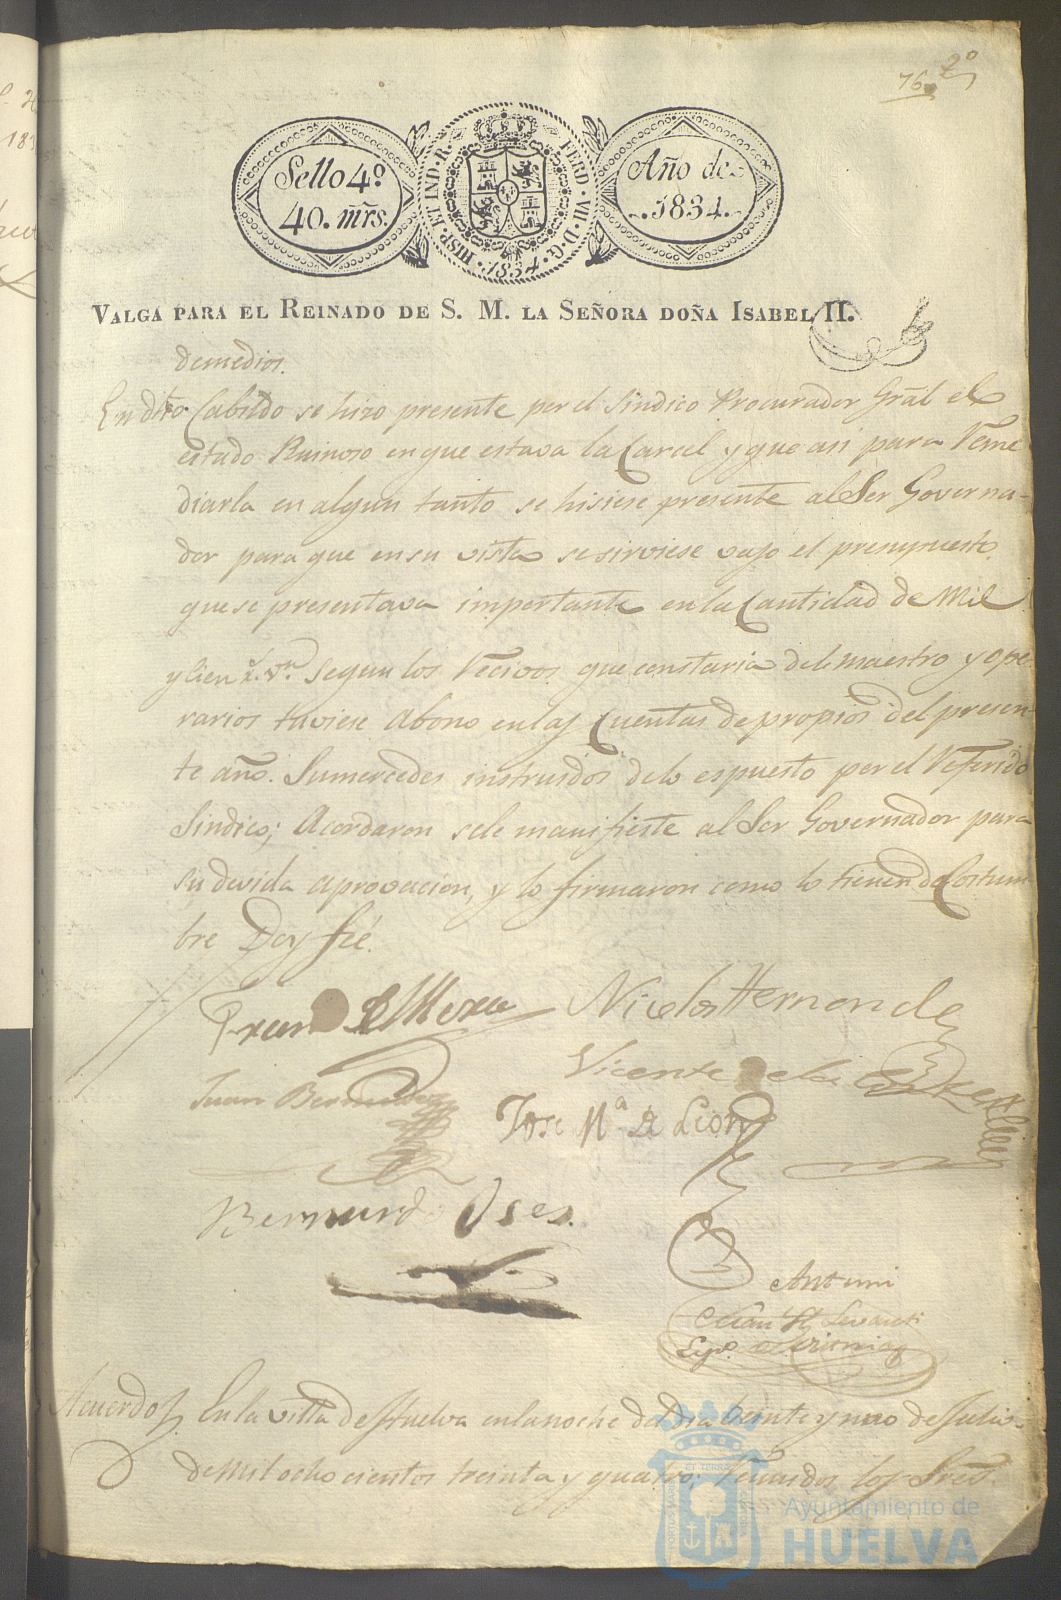 76 2º
Sello 4º
40. mrs.
HISP. ET IND. R. FERD. VII. D. G. 1834.
Año de
1834.
VALGA PARA EL REINADO DE S. M. LA SEÑORA DOÑA ISABEL II.
demedios.
En dho. Cabildo se hizo presente por el Sindico Procurador Gral el
estado Ruinoso en que estava la Carcel y que asi para Reme
diarla en algun tanto se hisiese presente al Sor Governa-
dor para que en su vista se sirviese vajo el presupuesto
que se presentava importante en la Cantidad de Mil
y Cien r.s v.n segun los Recivos que constaria del maestro y ope
rarios tuviese Abono en las Cuentas de propios del presen
te año. Sumercedes instruidos delo espuesto por el Referido
Sindico; Acordaron sele manifieste al Sor Governador para
su devida aprovacion, y lo firmaron como lo tienen de Costum
bre Doy feé.
Fran de Mora Nicolas Hernande
Vicente de la
Juan Bermudez
Jose Mª de Leon
Bernardo Oses.
Antoni
Acuerdo En la villa de Huelva en la noche del dia beinte y uno de Julio
de Mil ocho cientos treinta y quatro; Reunidos los Sres
Ayuntamiento de
HUELVA